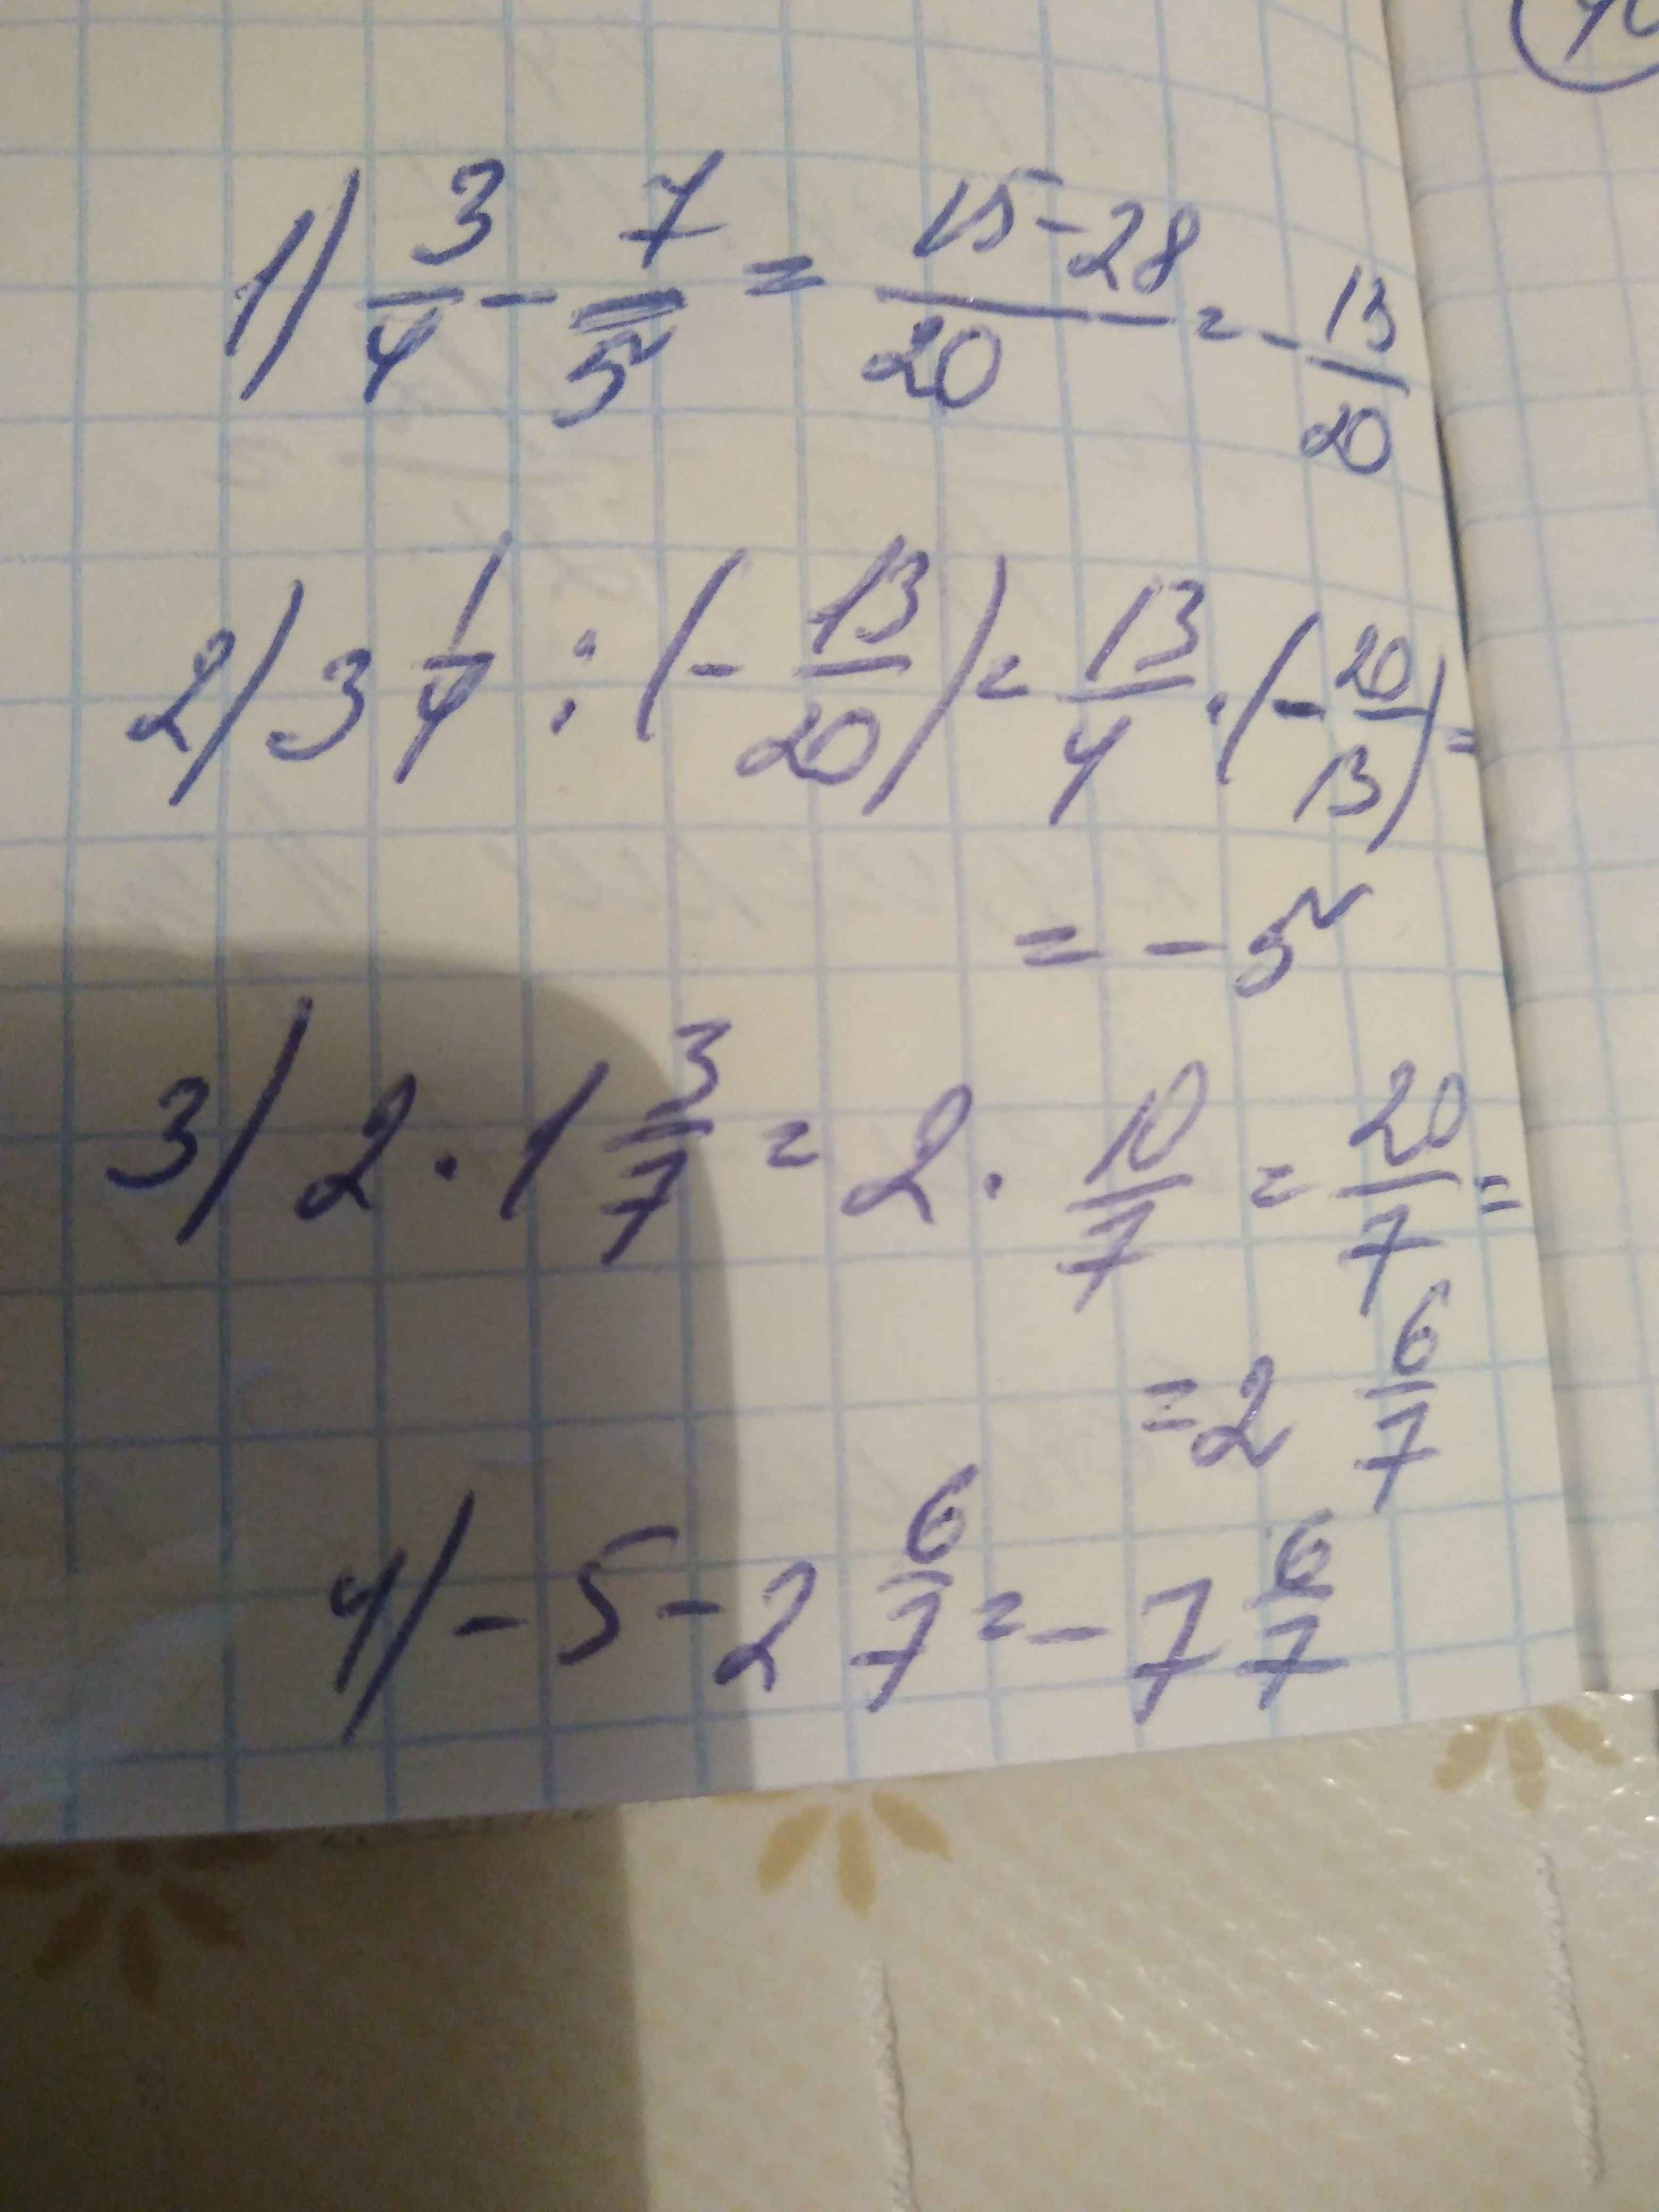 1) 3/4 - 7/5 = 15-28/20 = - 13/20
2) 3 1/4 : (- 13/20) = 13/4 · (- 20/13) =
= - 5
3) 2 · 1 3/7 = 2 · 10/7 = 20/7 =
= 2 6/7
4) - 5 - 2 6/7 = - 7 6/7